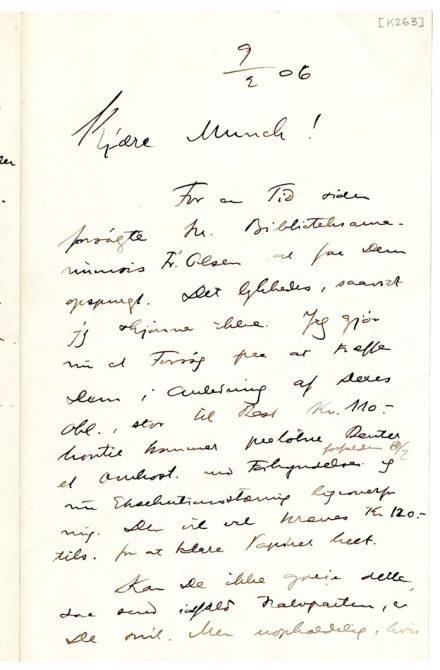 [K263]
9/2 06
Kjære Munch!
For en Tid siden
forsøgte Hr. Biblioteksama-
nuensis Fr. Olsen at faa Dem
opspurgt. Det lykkedes, saavidt
jeg skjønner ikke. Jeg gjør
nu et Forsøg paa at træffe
Dem i Anledning af Deres
Obl., stor til Rest Kr. 110.-
hvortil kommer paaløbne Renter
forfalden 8/2
et omkost. ved Forkyndelse og
nu Exekutions
ning. Der vil vel kræves Kr 120.-
tils. for at klare Papiret helt.
Kan De ikke greie dette
saa send ialfald Halvparten, er
De snil. Men uopholdelig, hvis